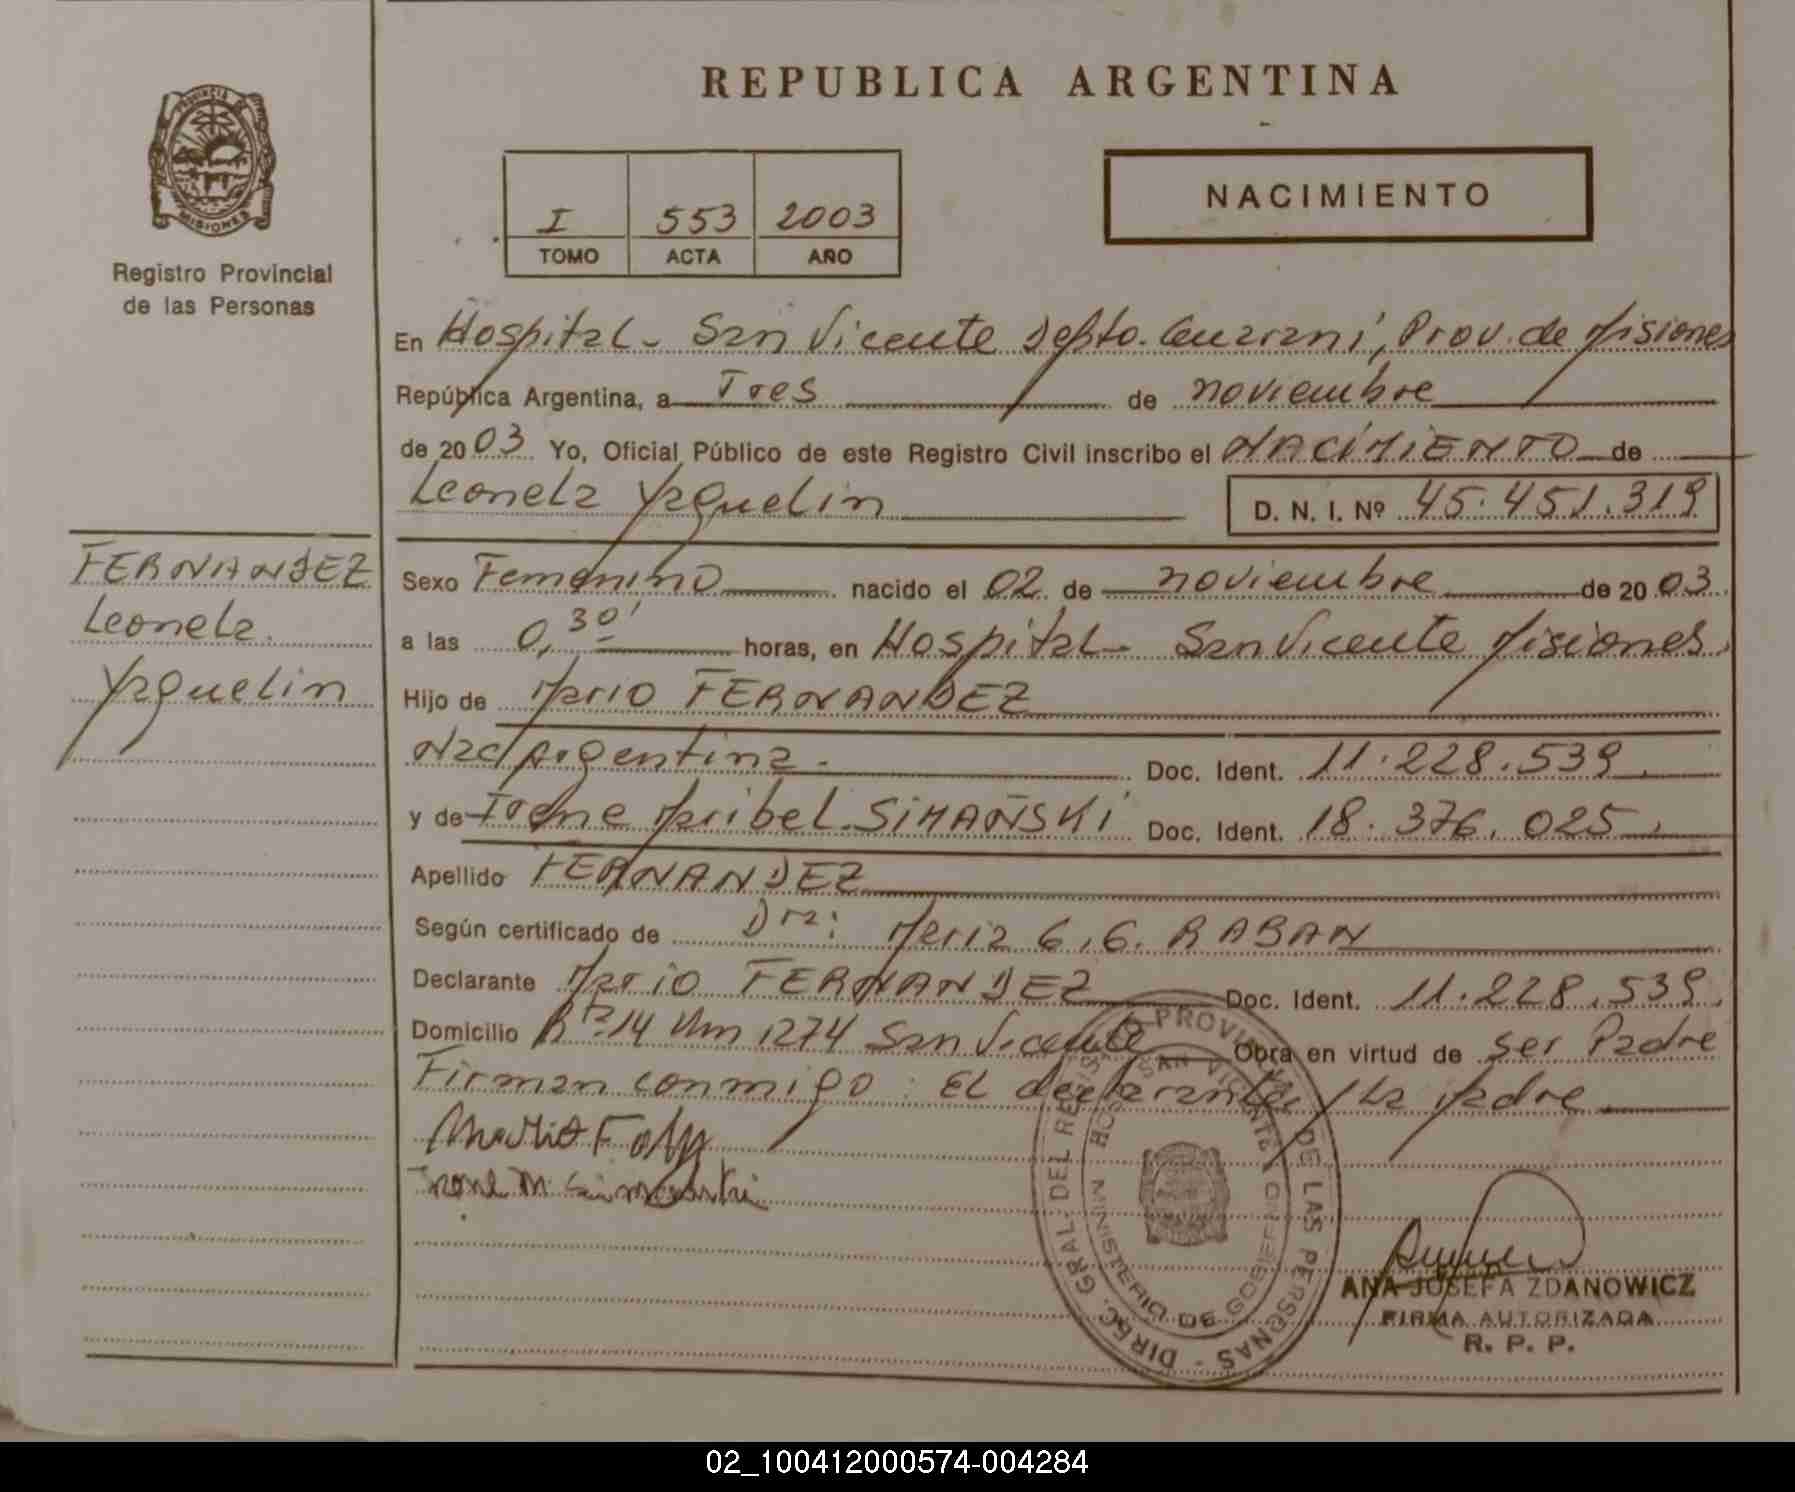 REPUBLICA ARGENTINA
PROVINCIA DE
MISIONES
Registro Provincial
de las Personas
I 553 2003
TOMO ACTA AÑO
NACIMIENTO
En Hospital - San Vicente Depto. Guaraní, Prov. de Misiones
República Argentina, a Tres de noviembre
de 2003. Yo, Oficial Público de este Registro Civil inscribo el NACIMIENTO de
Leonela Yaquelin D. N. I. Nº 45.451.319
FERNANDEZ
Leonela
Yaquelin
Sexo Femenino nacido el 02 de noviembre de 2003
a las 0,30' horas, en Hospital - San Vicente Misiones.
Hijo de Mario FERNANDEZ
Nac Argentina. Doc. Ident. 11.228.539
y de Irene Maribel SIMAÑSKI Doc. Ident. 18.376.025
Apellido FERNANDEZ
Según certificado de Dra: Maria G. G. RABAN
Declarante Mario FERNANDEZ Doc. Ident. 11.228.539
Domicilio Rta 14 Km 1274 San Vicente Obra en virtud de ser Padre
Firman conmigo: El declarante y la Madre
Irene M. Simanski
DIREC. GRAL. DEL REGISTRO PROVINCIAL DE LAS PERSONAS -
HOSP. SAN VICENTE
MINISTERIO DE GOBIERNO
ANA JOSEFA ZDANOWICZ
FIRMA AUTORIZADA
R. P. P.
02_100412000574-004284